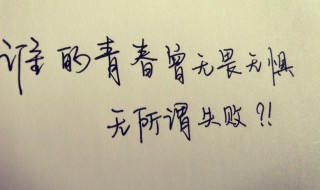 谁的青春曾无畏无惧
无所谓失败?!!